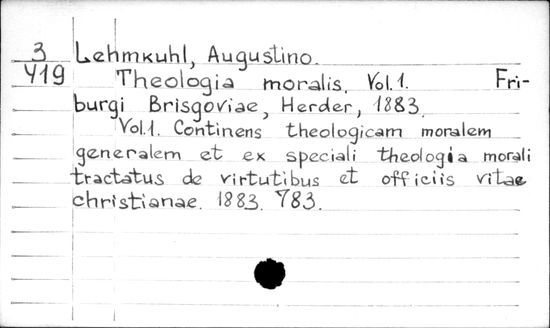 3 Lehmkuhl, Augustino.
419 Theologia moralis. Vol. 1. Fri-
burgi Brisgoviae, Herder, 1883.
Vol. 1. Continens theologicam moralem
generalem et ex speciali theologia morali
tractatus de virtutibus et officiis vitae
christianae. 1883. 783.